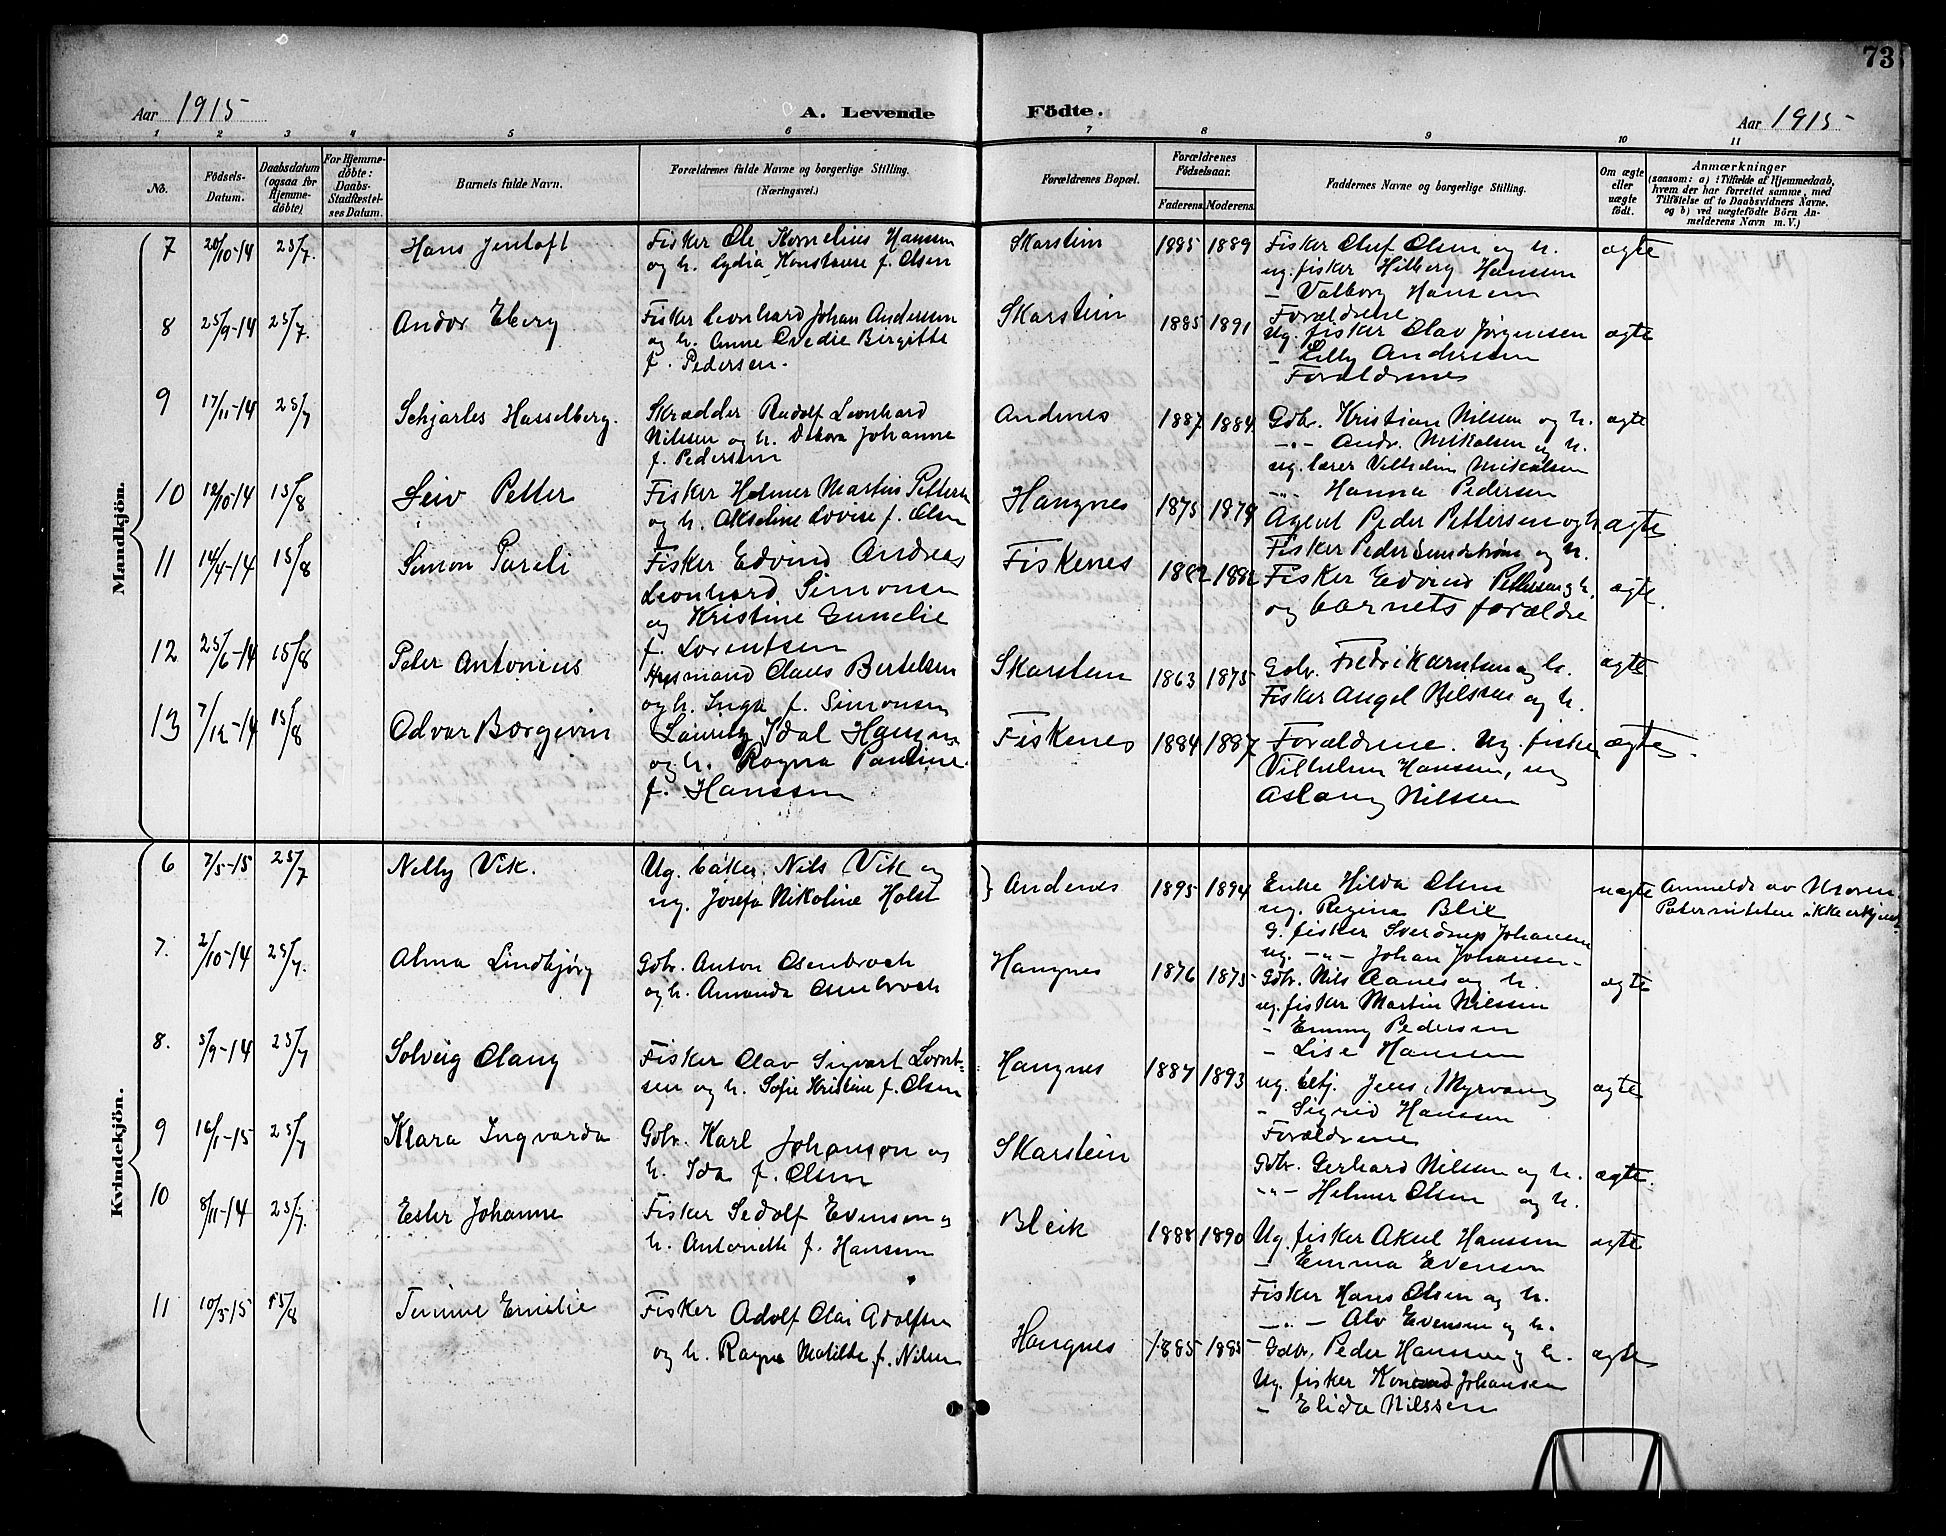 73
Aar 1915
A. Levende Födte.
Aar 1915
1 2 3 4 5 6 7 8 9 10 11
No.
Födsels-Datum.
Daabsdatum (ogsaa for Hjemmedöbte)
For Hjemmedöbte: Daabs-Stadfæstelses Datum.
Barnets fulde Navn.
Forældrenes fulde Navne og borgerlige Stilling. (Næringsvei.)
Forældrenes Bopæl.
Forældrenes Födselsaar.
Faderens Moderens
Faddernes Navne og borgerlige Stilling.
Om ægte eller uægte födt.
Anmærkninger
(saasom: a) i Tilfælde af Hjemmedaab,
hvem der har forrettet samme, med
Tilföielse af to Daabsvidners Navne.
og b) ved uægtefödte Börn An-
melderens Navn m. V.)
Mandkjön.
7 20/10-14 25/7. Hans Jentoft
Fisker Ole Kornelius Hansen
og h. Lydia Konstanse f. Olsen
Skarstein 1885 1889
Fisker Oluf Olsen og h.
ug. fisker Hilberg Hansen
- Valborg Hansen
Forældrene
ægte
8 25/9-14 25/7. Andor Eberg
Fisker Leonhard Johan Andersen
og h. Anne Birgitte
f. Pedersen.
Skarstein 1885 1891
Ug. fisker Olav Jørgensen
- Lilly Andersen
Forældrenes
ægte
9 17/11-14 25/7 Schjarles Hasselberg.
Skrædder Rudolf Leonhard
Nilssen og h. Johanne
f. Pedersen
Andenes 1887 1884.
Gdbr. Kristian Nilsen og h.
-"- Andr. Mikalsen og h.
ug. lærer Vilhelm Mikalsen
"" Hanna Pedersen
ægte
10 12/10-14 15/8 Leiv Petter
Fisker Helmer Martin Pettersen
og h. Akseline Lovise f. Olsen
Haugnes 1875 1879
Agent Peder Pettersen og h.
Fisker Peder Sundstrøm og h.
ægte
11 14/4-14 15/8 Simon Pareli
Fisker Edvind Andreas
Leonhard Simonsen
og Kristine Emelie
f. Lorentsen
Fiskenes 1882 1882
Fisker Edvind Pettersen og h.
og barnets forældre
ægte.
12 25/6-14 15/8 Peter Antonius
Husmand Claus Bertelsen
og h. Inga f. Simonsen
Skarstein 1863 1875
Gdbr. Fredrik Arntsen og h.
Fisker Angel Nilssen og h.
ægte
13 7/12-14 15/8 Odvar Borgevin
Lauritz Idal Hansen
og h. Ragna Pauline
f. Hanssen
Fiskenes 1884 1887
Forældrene. Ug. fisker
Vilhelm Hanssen, ug
Aslaug Nilssen
ægte
Kvindekjön.
6 7/5-15 25/7 Nelly Vik.
Ug. baker Nils Vik og
ug. Josefa Nikoline Holst
Andenes 1895 1894
Enke Hilda Olsen
ug. Regina Blix
G. fisker Sverdrup Johansen
ug. -"- Johan Johansen
uægte
Anmeldt av Moren
Paterniteten ikke erkjendt
7. 2/10-14 25/7. Alma Lindbjørg
Gdbr. Anton Osenbroch
og h. Amanda Osenbroch
Haugnes 1876 1875
Gdbr. Nils Aanes og h.
ug. fisker Martin Nilssen
- Emmy Pedersen
- Lise Hansen
ægte
8. 3/9-14 25/7 Solveig Olaug
Fisker Olav Sigvart Lorent-
sen og h. Sofie Kristine f. Olsen
Haugnes 1887 1893
ug. betj. Jens Myrvang
- Sigrid Hansen
Forældrene
ægte
9 16/1-15 25/7 Klara Ingvarda
Gdbr. Karl Johanson og
h. Ida f. Olsen
Skarstein
Gdbr. Gerhard Nilsen og h.
"- Helmer Olsen og h.
ægte.
10 8/11-14 25/7. Ester Johanne
Fisker Sedolf Evenson og
h. Antonette f. Hansen
Bleik 1888 1890
Ug. fisker Aksel Hanssen
- Emma Evenson
Fisker Hans Olsen og h.
-"- Alv Evensen og h.
ægte
11 10/3-15 15/8 Emilie
Fisker Adolf Olai Adolfsen
og h. Ragna Matilde f. Nilsen
Haugnes 1885 1885
Gdbr. Peder Hanssen og h.
Ug. fisker Konrad Johansen
- Elida Nilssen
ægte